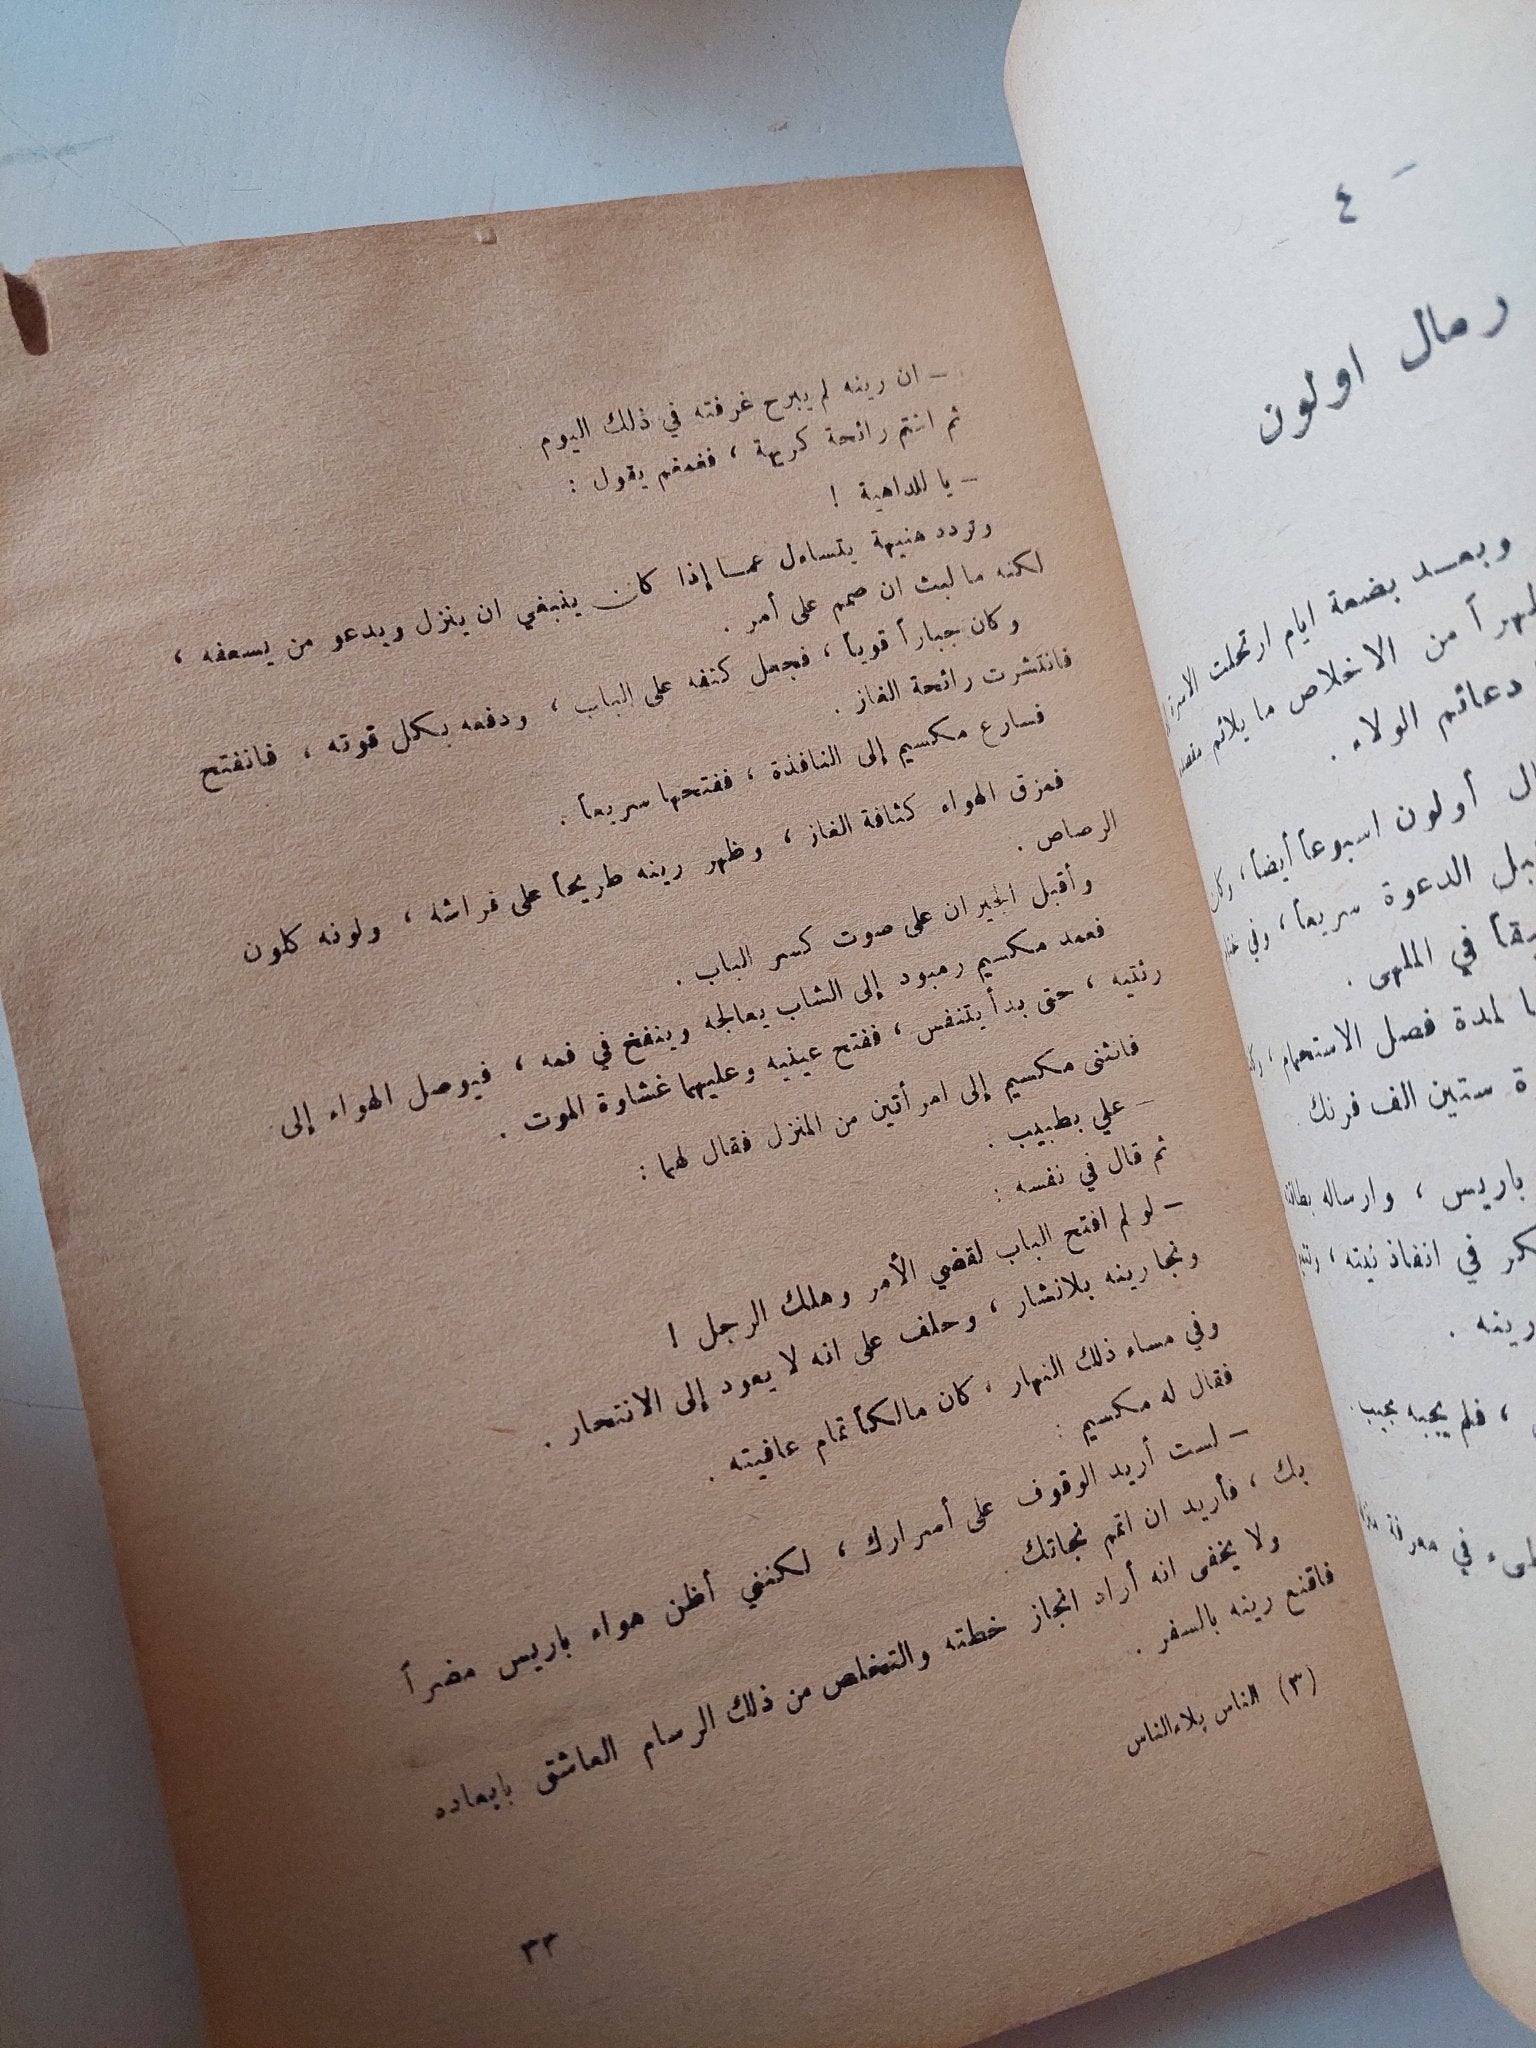 – ان رينه لم يبرح غرفته في ذلك اليوم .
ثم اشتم رائحة كريهة ، فغمغم يقول :
– يا للداهية !
وتردد هنيهة يتساءل عمـا إذا كان ينبغي ان ينزل ويدعو من يسعفه ،
لكنه ما لبث ان صمم على أمر .
وكان جباراً قوياً ، فجعل كتفه على الباب ، ودفعه بكل قوته ، فانفتح
فانتشرت رائحة الغاز .
فسارع مكسيم إلى النافذة ، ففتحها سريعاً .
فمزق الهواء كثافة الغاز ، وظهر رينه طريحاً على فراشه ، ولونه كلون
الرصاص .
وأقبل الجيران على صوت كسر الباب .
فعمد مكسيم رمبود إلى الشاب يعالجه وينفخ في فمه ، فيوصل الهواء إلى
رئتيه ، حتى بدأ يتنفس ، ففتح عينيه وعليهما غشاوة الموت .
فانثنى مكسيم إلى امرأتين من المنزل فقال لهما :
– علي بطبيب .
ثم قال في نفسه :
– لو لم افتح الباب لقضي الأمر وهلك الرجل !
ونجا رينه بلانشار ، وحلف على انه لا يعود إلى الانتحار .
وفي مساء ذلك النهار ، كان مالكاً تمام عافيته .
فقال له مكسيم :
– لست أريد الوقوف على أسرارك ، لكنني أظن هواء باريس مضراً
بك ، فأريد ان اتمم نجاتك .
ولا يخفى انه أراد انجاز خطته والتخلص من ذلك الرسام العاشق بابعاده
فاقنع رينه بالسفر .
(٣) الناس بلاء الناس
٣٣
– ٤ –
رمال اولون
وبعـد بضعة ايام ارتحلت الاسرة
من الاخلاص ما يلائم مقصد
دعائم الولاء .
أولون اسبوعاً أيضاً ، وكان
الدعوة سريعاً ، وفي
في الملهى .
لمدة فصل الاستحمام ،
ستين الف فرنك .
باريس ، وارساله
في انفاذ نيته ،
رينه .
، فلم يجبه مجيب .
في معرفة